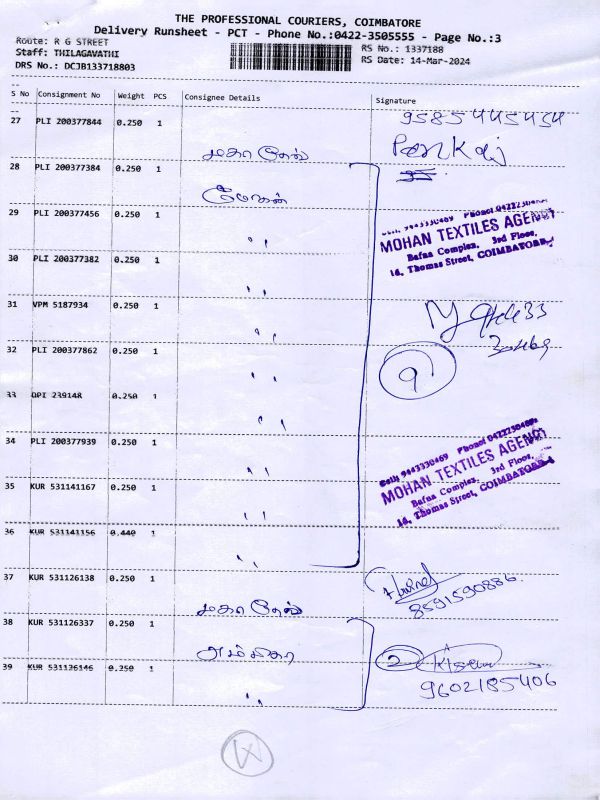 THE PROFESSIONAL COURIERS, COIMBATORE
Delivery Runsheet - PCT - Phone No.:0422-3505555 - Page No.:3
Route: R G STREET
Staff: THILAGAVATHI
DRS No.: DCJB133718803
RS No.: 1337188
RS Date: 14-Mar-2024
S No Consignment No Weight PCS Consignee Details Signature
27 PLI 200377844 0.250 1 9585445454
28 PLI 200377384 0.250 1
29 PLI 200377456 0.250 1 "
MOHAN TEXTILES AGENCY
Bafna Complex, 3rd Floor,
16, Thomas Street, COIMBATORE-1
30 PLI 200377382 0.250 1 "
31 VPM 5187934 0.250 1 "
32 PLI 200377862 0.250 1 "
9
33 DPI 239148 0.250 1 "
34 PLI 200377939 0.250 1 "
MOHAN TEXTILES AGENCY
Bafna Complex, 3rd Floor,
16, Thomas Street, COIMBATORE-1
35 KUR 531141167 0.250 1 "
36 KUR 531141156 0.440 1 "
37 KUR 531126138 0.250 1
8591590886
38 KUR 531126337 0.250 1 2
39 KUR 531126146 0.250 1 " 9602185406